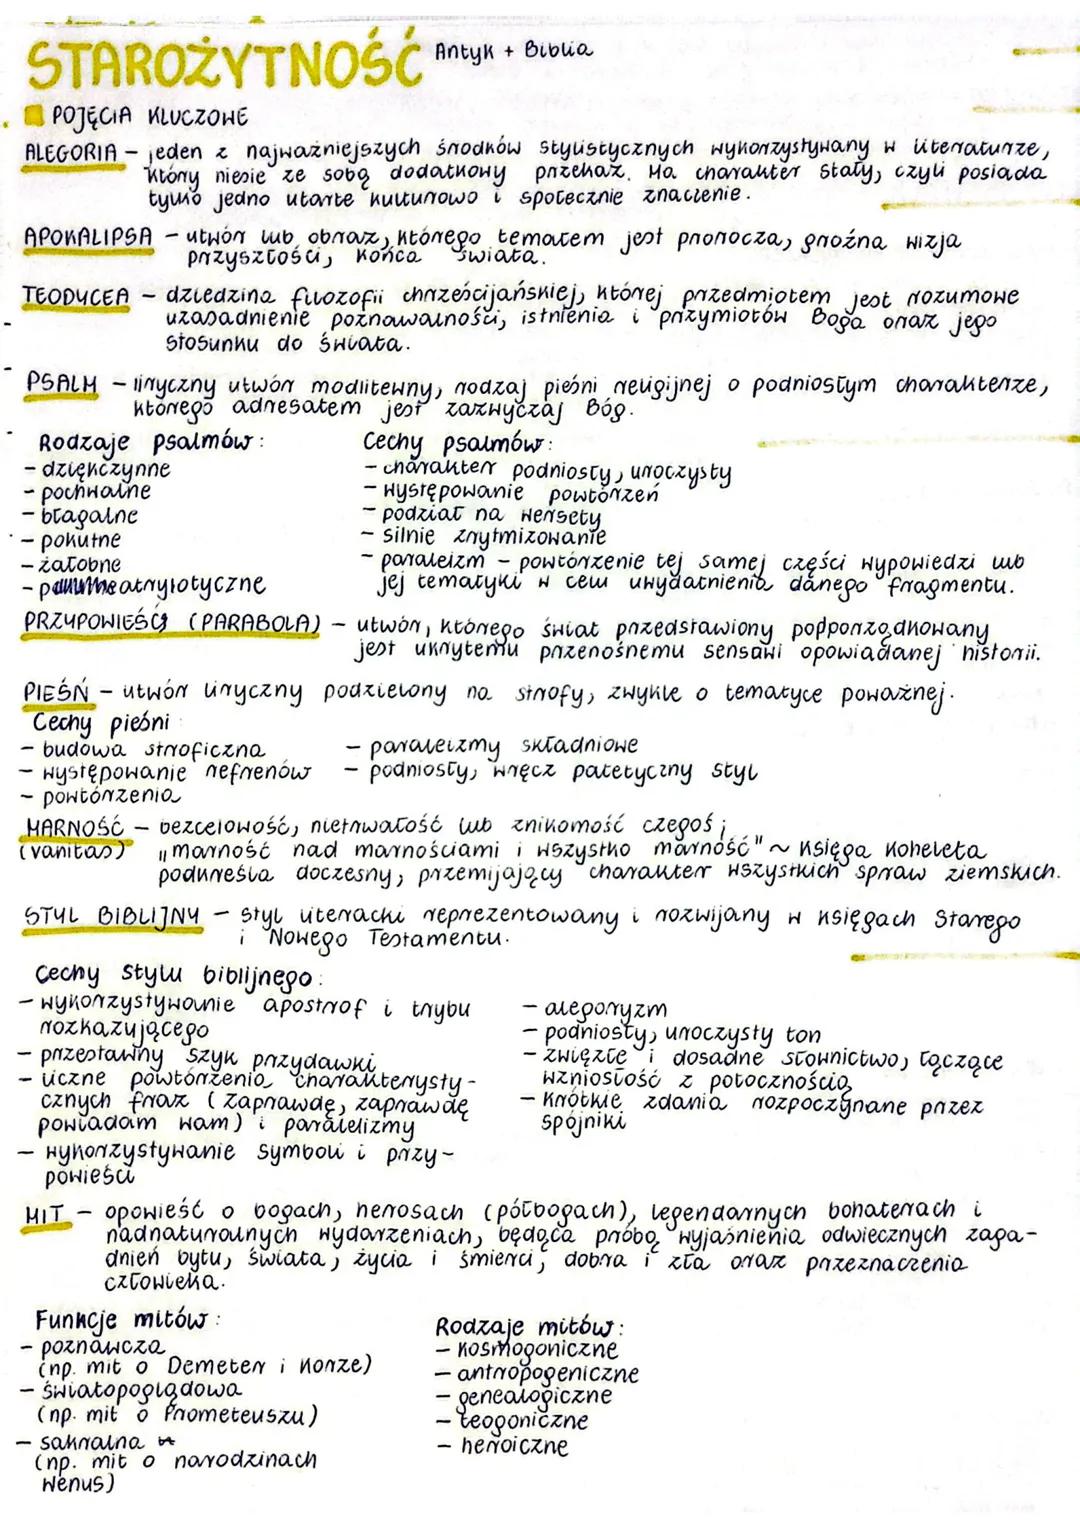 STAROŻYTNOŚĆ Antyk + Biblia
POJĘCIA KLUCZOWE
ALEGORIA – jeden z najważniejszych środków stylistycznych wykorzystywany w literaturze,
który niesie ze sobą dodatkowy przekaz. Ma charakter stały, czyli posiada
tylko jedno utarte kulturowo i społecznie znaczenie.
APOKALIPSA – utwór lub obraz, którego tematem jest prorocza, groźna wizja
przyszłości, końca świata.
TEODYCEA – dziedzina filozofii chrześcijańskiej, której przedmiotem jest rozumowe
uzasadnienie poznawalności, istnienia i przymiotów Boga oraz jego
stosunku do świata.
PSALM – liryczny utwór modlitewny, rodzaj pieśni religijnej o podniosłym charakterze,
którego adresatem jest zazwyczaj Bóg.
Rodzaje psalmów:
– dziękczynne
– pochwalne
– błagalne
– pokutne
– żałobne
– patryiotyczne
Cechy psalmów:
– charakter podniosły, uroczysty
– występowanie powtórzeń
– podział na wersety
– silnie zrytmizowanie
– paraleizm – powtórzenie tej samej części wypowiedzi lub
jej tematyki w celu uwydatnienia danego fragmentu.
PRZYPOWIEŚĆ (PARABOLA) – utwór, którego świat przedstawiony podporządkowany
jest ukrytemu przenośnemu sensowi opowiadanej historii.
PIEŚŃ – utwór liryczny podzielony na strofy, zwykle o tematyce poważnej.
Cechy pieśni
– budowa stroficzna
– występowanie refrenów
– powtórzenia
– paraleizmy składniowe
– podniosły, wręcz patetyczny styl
MARNOŚĆ – bezcelowość, nietrwałość lub znikomość czegoś;
(vanitas) „marność nad marnościami i wszystko marność" ~ Księga Koheleta
podkreśla doczesny, przemijający charakter wszystkich spraw ziemskich.
STYL BIBLIJNY – styl literacki reprezentowany i rozwijany w księgach Starego
i Nowego Testamentu.
Cechy stylu biblijnego:
– wykorzystywanie apostrof i trybu
rozkazującego
– przestawny szyk przydawki
– liczne powtórzenia charakterysty-
cznych fraz (Zaprawdę, zaprawdę
powiadam wam) i paralelizmy
– wykorzystywanie symboli i przy-
powieści
– alegoryzm
– podniosły, uroczysty ton
– zwięzłe i dosadne słownictwo, łączące
wzniosłość z potocznością
– krótkie zdania rozpoczynane przez
spójniki
MIT – opowieść o bogach, herosach (półbogach), legendarnych bohaterach i
nadnaturalnych wydarzeniach, będąca próbą wyjaśnienia odwiecznych zaga-
dnień bytu, świata, życia i śmierci, dobra i zła oraz przeznaczenia
człowieka.
Funkcje mitów:
– poznawcza
(np. mit o Demeter i Korze)
– światopoglądowa
(np. mit o Prometeuszu)
– sakralna
(np. mit o narodzinach
Wenus)
Rodzaje mitów:
– kosmogoniczne
– antropogeniczne
– genealogiczne
– teogoniczne
– heroiczne